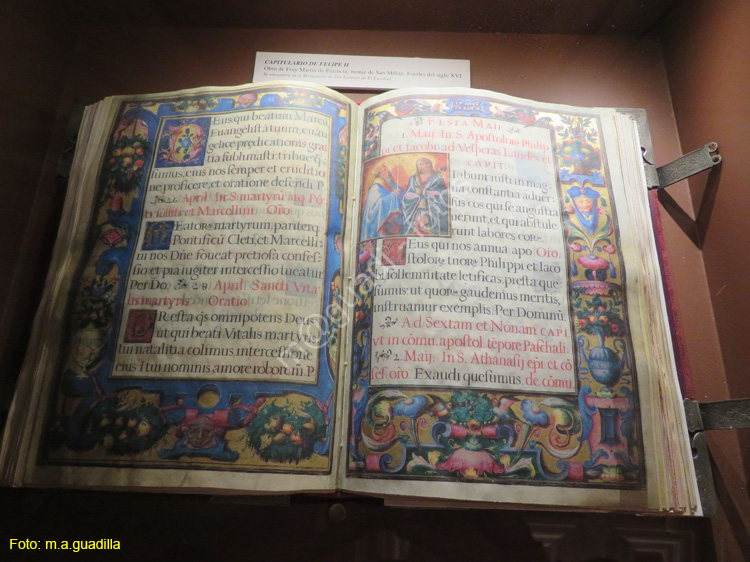 CAPITULARIO DE FELIPE II
Obra de Fray Martín de Palencia, monje de San Millán. Finales del siglo XVI.
Eus qui beatum Marcū
Euangelistā tuum, euan
gelicę prędicationis gra
tia sublimasti: tribue q̄s
umus, eius nos semper et eruditio
ne proficere, et oratione defendi. P
26. April. In S. martyrū
et Marcellini Oro.
Beator martyrum, pariterq̃
Pontificū Cleti, et Marcelli
ni nos Dn̄e foueat pretiosa confes
sio et pia iugiter intercessio tueatur
Per Do. 28. April. Sancti Vita
lis martyris. Oratio.
Pręsta q̄s omnipotens Deus
ut qui beati Vitalis martyris
tui natalitia colimus, intercessione
eius in tui nominis amore roboremur. P
FESTA MAII.
1. Maij. In S. Apostolorū Philip
pi et Iacobi, ad Vesperas Laudes et
CAPIT.
Tabunt iusti in mag
na constantia aduer
sus eos qui se angustia
uerunt: et qui abstule
runt labores eorū.
Deus qui nos annua apo Oro.
stolorū tuorū Philippi et Iaco
bi, sollemnitate lętificas: pręsta quę
sumus: ut quorū gaudemus meritis,
instruamur exemplis. Per Dominū
Ad Sextam et Nonam CAPI.
VT in cōmu. apostol. tēpore Paschali.
2. Maij: In S. Athanasij epi et cō
fes. oro. Exaudi quęsumus. de cōmu.
m@guadilla
Foto: m.a.guadilla